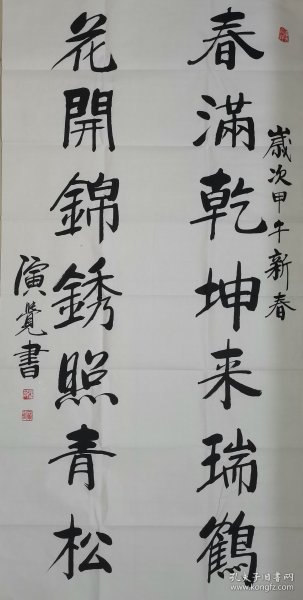 春滿乾坤来瑞鶴
歲次甲午新春
花開錦銹照青松
演覺書
孔夫子旧书网